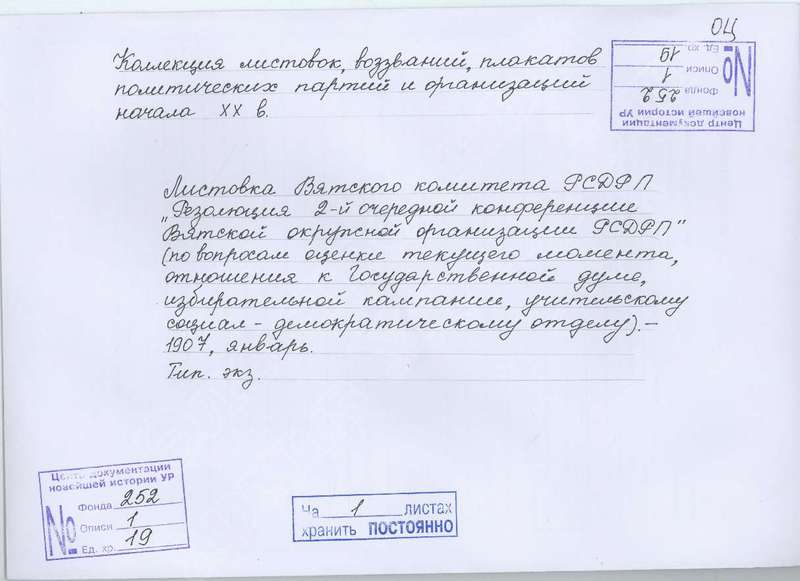 ОЦ
Коллекция листовок, воззваний, плакатов
политических партий и организаций
начала XX в.
Центр документации
новейшей истории УР
№
Фонда 252
Описи 1
Ед. хр. 19
Листовка Вятского комитета РСДРП
„Резолюция 2-й очередной конференции
Вятской окружной организации РСДРП"
(по вопросам оценки текущего момента,
отношения к Государственной думе,
избирательной кампании, учительскому
социал-демократическому отделу).-
1907, январь.
Тип. экз.
Центр документации
новейшей истории УР
№
Фонда 252
Описи 1
Ед. хр. 19
На 1 листах
хранить ПОСТОЯННО